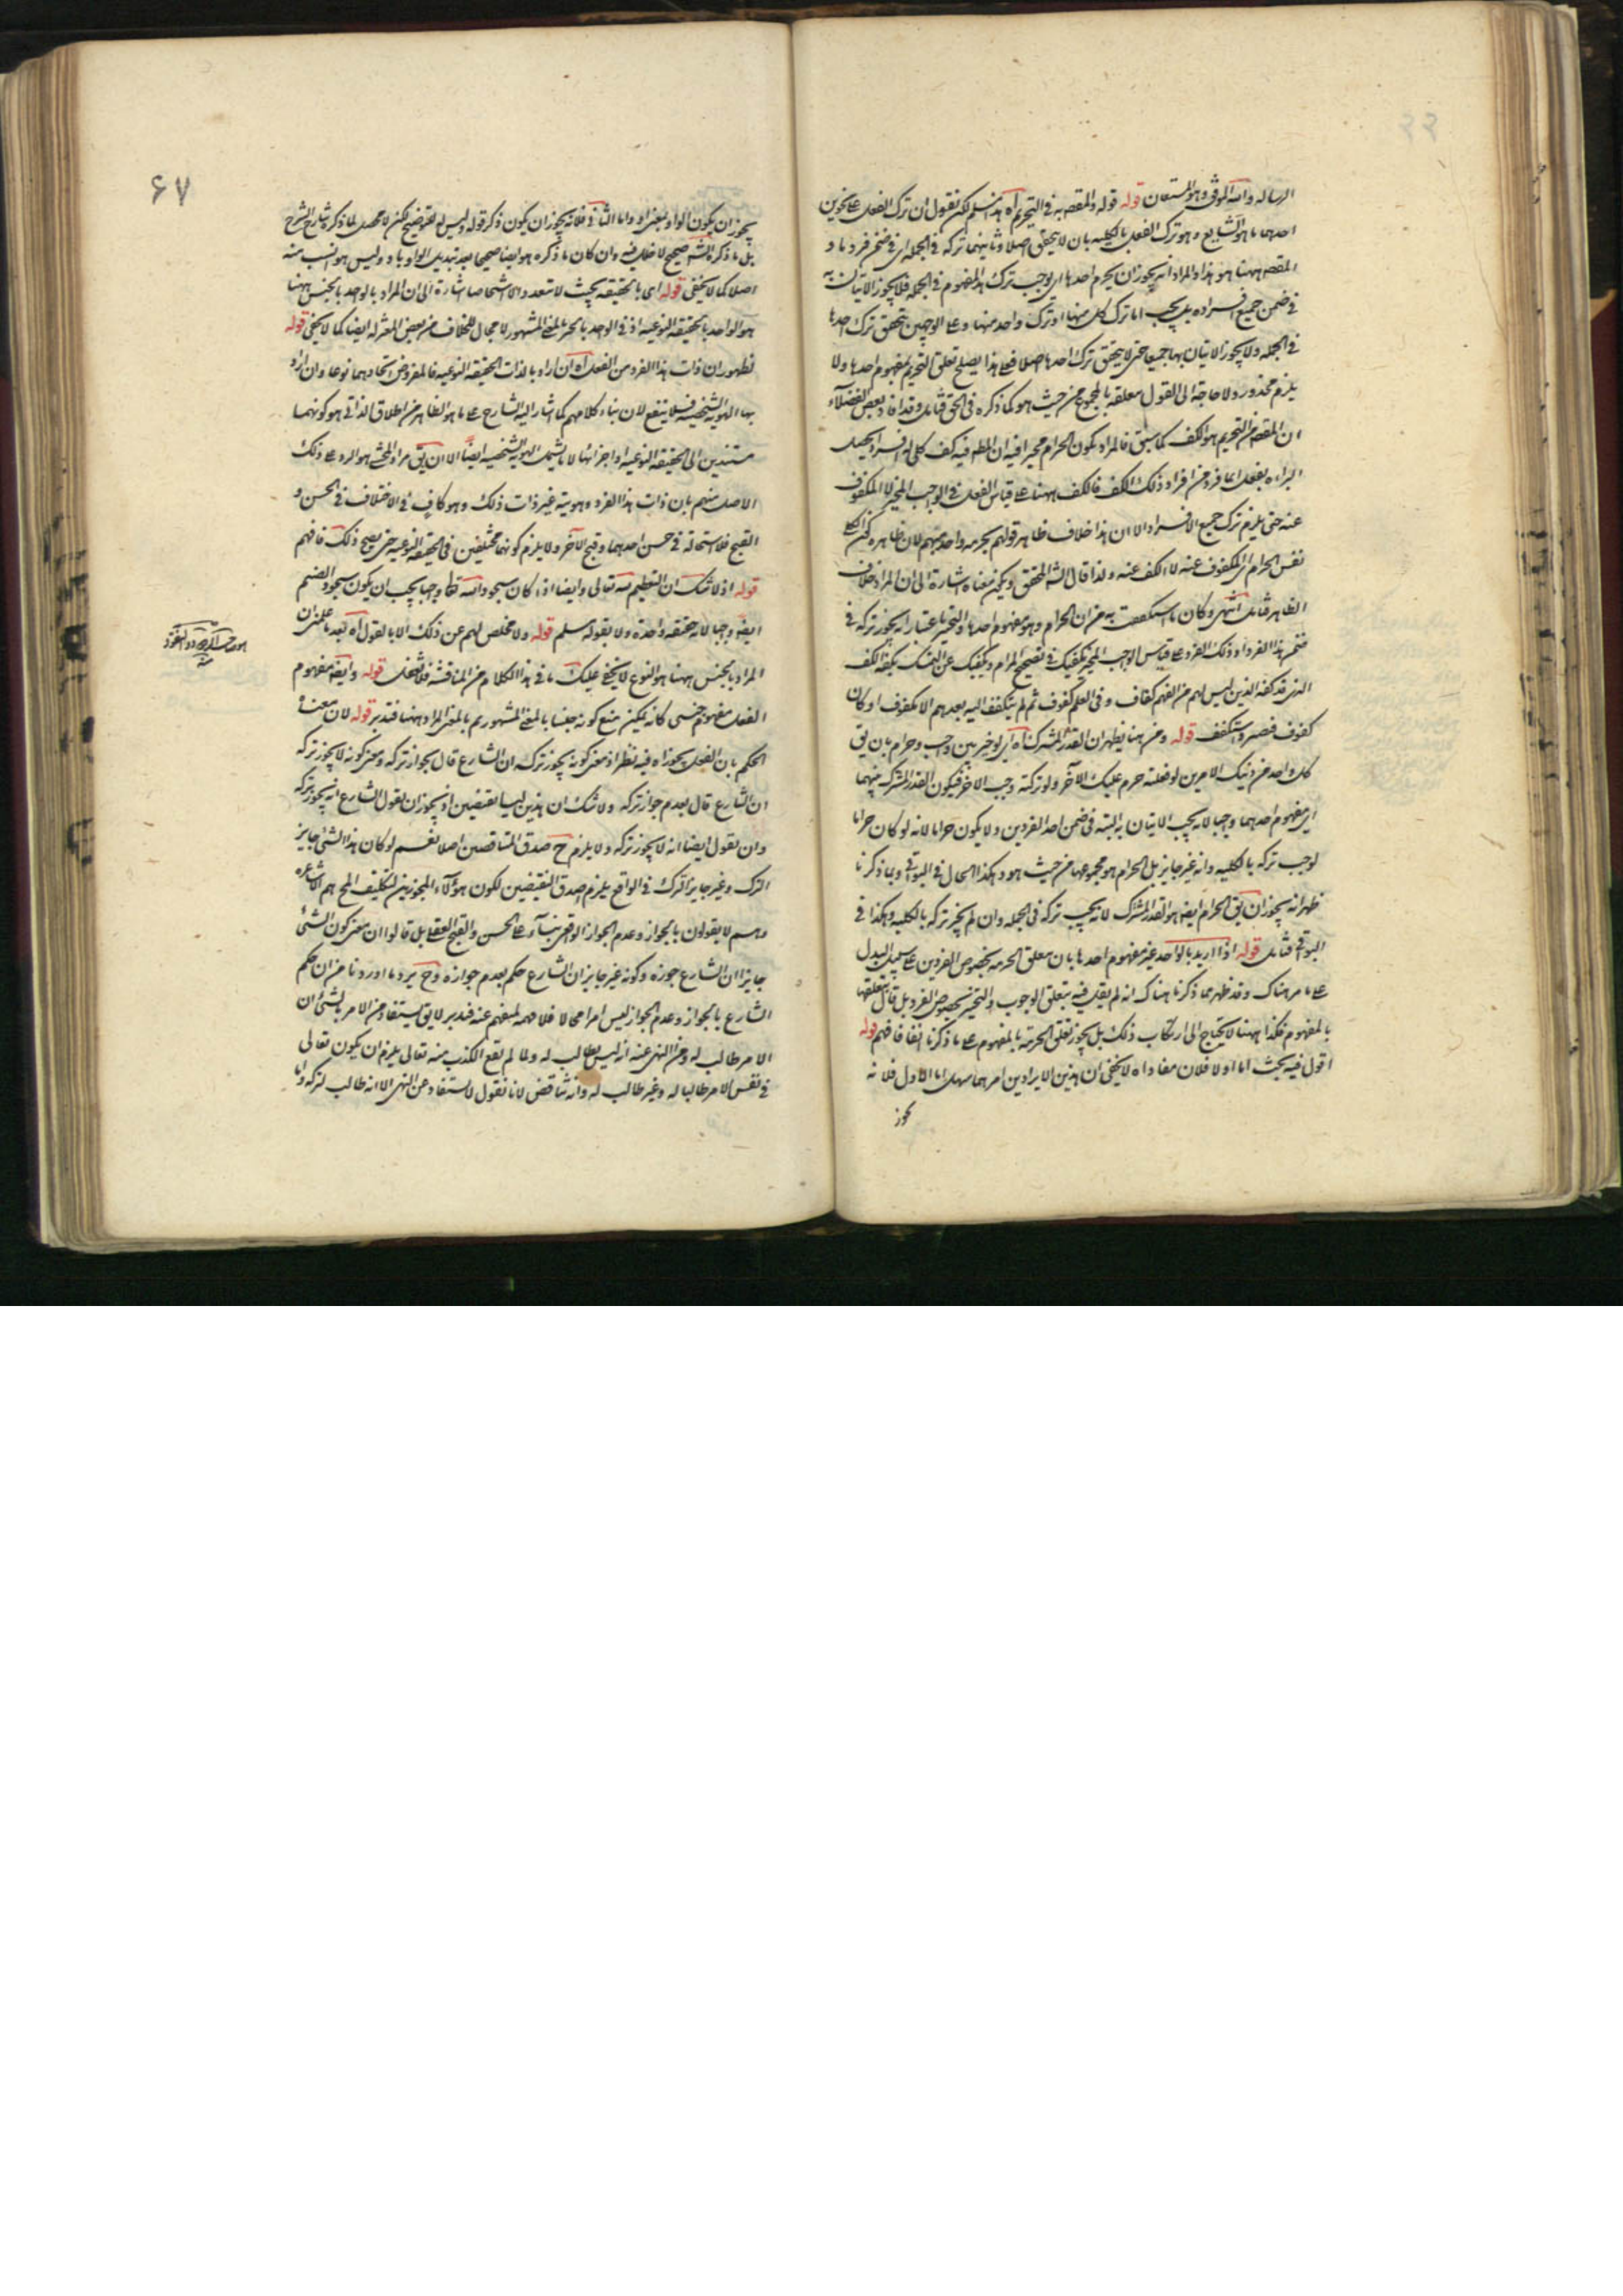 الرساله والله الموفق وهو المستعان قوله قوله والمقصه به فى التحريم اه هذا مسلم لكن نقول ان ترك الفعل على نحوين
احدهما ما هو الشايع وهو ترك الفعل بالكليه بان لا يتحقق اصلا وثانيهما تركه فى الجمله اى فى ضمن فرد ما و
المقصه ههنا هو هذا والمراد انه يجوز ان يحرم احدها اى يوجب ترك هذا المفهوم فى الجمله فلا يجوز الاتيان به
فى ضمن جميع افراده بل يجب اما ترك كل منها او ترك واحد منها وعلى الوجهين يتحقق ترك احدها
فى الجمله ولا يجوز الاتيان بها جميعا حتى لا يتحقق ترك احدها اصلا فعلى هذا يصلح تعلق التحريم بمفهوم احدها ولا
يلزم محذور ولا حاجة الى القول بتعلقه بالمجموع من حيث هو كما ذكره فى الحق فتامل وقد افاد بعض الفضلاء
ان المقصه من التحريم هو الكف كما سبق فالمراد بكون الحرام مخيرا فيه ان المط فيه كف كلى له افراد يحصل
البراءه بفعل اى فرد من افراد ذلك الكف فالكف ههنا على قياس الفعل فى الواجب المخير لا المكفوف
عنه حتى يلزم ترك جميع الافراد الا ان هذا خلاف ظاهر قولهم يحرم واحد مبهم لان ظاهره
نفس الحرام اى المكفوف عنه لا الكف عنه ولذا قال الشه المحقق ويكون معناه اشارة الى ان المراد خلاف
الظاهر فتامل انتهى وكان ما استكففت به من ان الحرام وهو مفهوم احدها والتخيير باعتبار انه يجوز تركه فى
ضمن هذا الفرد او ذلك الفرد على قياس الواجب المخير يكفيك فى تصحيح المرام ويكفك عن التمسك بكفة الكف
الذى قد كفه الذين ليس لهم من الفهم كفاف وفى العلم كفوف ثم لم يتكفف اليه بعدهم الا مكفوف او كان
كفوف فصبر واستكفف قوله ومن هنا يظهر ان القدر المشترك اه اى لو خير بين واجب وحرام بان يق
كل واحد من ذينك الامرين لو فعلته حرم عليك الآخر ولو تركته وجب الاخر فيكون القدر المشترك بينهما
اى مفهوم احدهما واجبا لانه يجب الاتيان به البته فى ضمن احد الفردين ولا يكون حراما لانه لو كان حراما
لوجب تركه بالكليه وانه غير جايز بل الحرام هو مجموعهما من حيث هو وهكذا الحال فى البواقى وبما ذكرنا
ظهر انه يجوز ان يق الحرام ايضه هو القدر المشترك لانه يجب تركه فى الجمله وان لم يجز تركه بالكليه وهكذا فى
البواقى فتامل قوله اذا اريد بالواحد غير مفهوم احدها بان معلق الحرمه بخصوص الفردين على سبيل البدل
على ما مر هناك وقد ظهر بما ذكرنا هناك انه لم يقل فيه بتعلق الوجوب والتخيير بخصوص الفرد بل قال بتعلقها
بالمفهوم فكذا ههنا لا يحتاج الى ارتكاب ذلك بل يجوز تعلق الحرمة بالمفهوم على ما ذكرنا انفا فافهم قوله
اقول فيه بحث اما اولا فلان مفاداه لا يخفى ان هذين الايرادين امرهما سهل اما الاول فلانه
يجوز
۶۷
يجوز ان يكون الواو بمعنى او واما الثانى فلانه يجوز ان يكون ذكر قوله وليس له لتوضيح لكن لا محصل لما ذكره شارح الشرح
بل ما ذكره الشه صحيح لا خلل فيه وان كان ما ذكره هو ايضا صحيحا بعد تبديل الواو باو وليس هو انسب منه
اصلا كما لا يخفى قوله اى بالحقيقه بحيث لا تتعدد الا اشخاصا اشارة الى ان المراد بالواحد بالجنس ههنا
هو الواحد بالحقيقه النوعيه اذ فى الواحد بالجنس بالمعنى المشهور لا مجال للخلاف من بعض المعتزله ايضا كما لا يخفى قوله
لظهور ان ذات هذا الفرد من الفعل اه ان اراد بالذات الحقيقه النوعيه فالمفروض اتحادهما نوعا وان اراد
بها الهوية الشخصيه فلا ينفع لان بناء كلامهم كما اشار اليه الشارح على ما هو الظاهر من اطلاق الذاتى هو كونهما
مستندين الى الحقيقه النوعيه او اجزائها لا ما يشمل الهوية الشخصيه ايضا الا ان يق مراد المحشى هو الرد على ذلك
الاصل منهم بان ذات هذا الفرد وهويته غير ذات ذلك وهو كاف فى الاختلاف فى الحسن و
القبح فلا استحالة فى حسن احدهما وقبح الآخر ولا يلزم كونهما مختلفين فى الحقيقه النوعيه حتى يصح ذلك فافهم
قوله اذ لا شك ان التعظيم لله تعالى وايضا اذا كان سجود الله تعا واجبا يجب ان يكون سجود الصنم
ايضه واجبا لانه حقيقه واحدة ولا يقوله مسلم قوله ولا مخلص لهم عن ذلك الا بالقول اه بعد ما علمت ان
المراد بالجنس ههنا هو النوع لا يخفى عليك ما فى هذا الكلام من المناقشه فلا تغفل قوله وايضه مفهوم
الفعل مفهوم جنسى كانه يمكن منع كونه جنسا بالمعنى المشهور بم بالمعنى المراد ههنا فتدبر قوله لان معناه
الحكم بان الفعل يجوز اه فيه نظر اذ معنى كونه يجوز تركه ان الشارع قال بجواز تركه ومعنى كونه لا يجوز تركه
ان الشارع قال بعدم جواز تركه ولا شك ان هذين ليسا نقيضين اذ يجوز ان يقول الشارع انه يجوز تركه
وان يقول ايضا انه لا يجوز تركه ولا يلزم ح صدق المتناقضين اصلا نعم لو كان هذا الشئ جايز
الترك وغير جايز الترك فى الواقع يلزم صدق النقيضين لكون هؤلاء المجوزين لتكليف المح هم الاشاعره
وهم لا يقولون بالجواز وعدم الجواز الواقعى بناء على الحسن والقبح العقلى بل قالوا ان معنى كون الشئ
جايزا ان الشارع جوزه وكونه غير جايز ان الشارع حكم بعدم جوازه وح يرد ما اوردنا من ان حكم
الشارع بالجواز وعدم الجواز ليس امرا محالا فلا فهمه لمنعهم عنه فتدبر لا يق يستفاد من الامر بالشئ ان
الامر طالب له ومن النهى عنه انه ليس بطالب له ولما لم يقع الكذب منه تعالى يلزم ان يكون تعالى
فى نفس الامر طالبا له وغير طالب له وانه تناقض لانا نقول لا يستفاد من النهى الا انه طالب لتركه واما